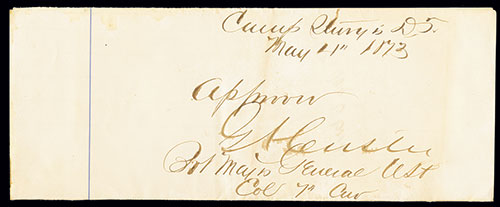 Camp Sturgis D.T.
May 21st 1873
Approved
G A Custer
Bvt Major General USA
Col 7th Cav